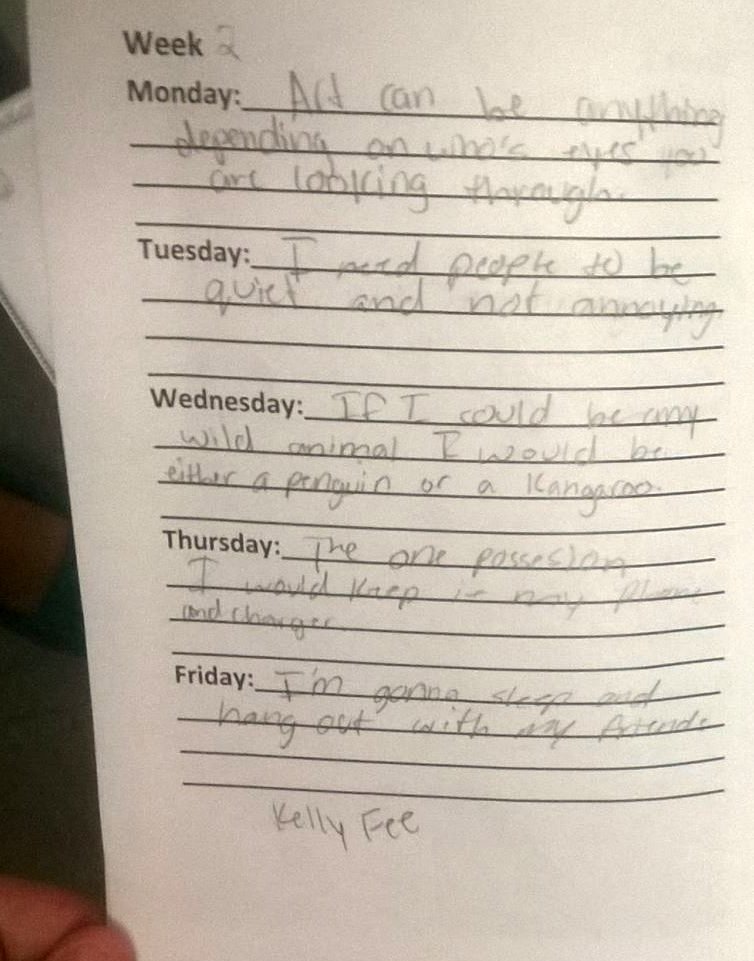 Week 2
Monday: Art can be anything
depending on who's eyes you
are looking through.
Tuesday: I need people to be
quiet and not annoying
Wednesday: If I could be any
wild animal I would be
either a penguin or a Kangaroo.
Thursday: The one possesion
I would keep is my phone
and charger
Friday: I'm gonna sleep and
hang out with my friends
Kelly Fee